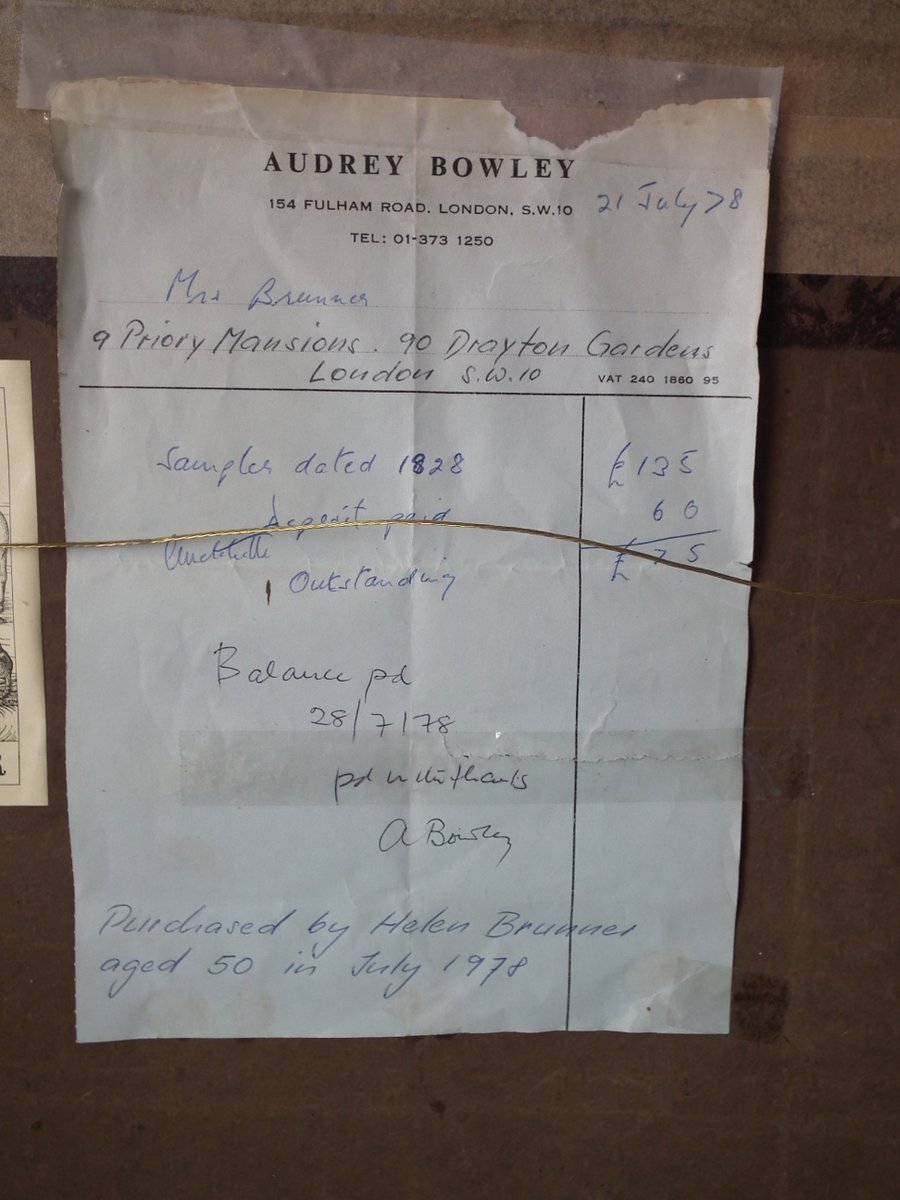 AUDREY BOWLEY
154 FULHAM ROAD, LONDON, S.W.10
21 July 78
TEL: 01-373 1250
Mrs Brunner
9 Priory Mansions. 90 Drayton Gardens
London S.W.10
VAT 240 1860 95
Sampler dated 1828 £135
Deposit paid 60
Outstanding £75
Balance pd
28/7/78
pd with thanks
A Bowley
Purchased by Helen Brunner
aged 50 in July 1978